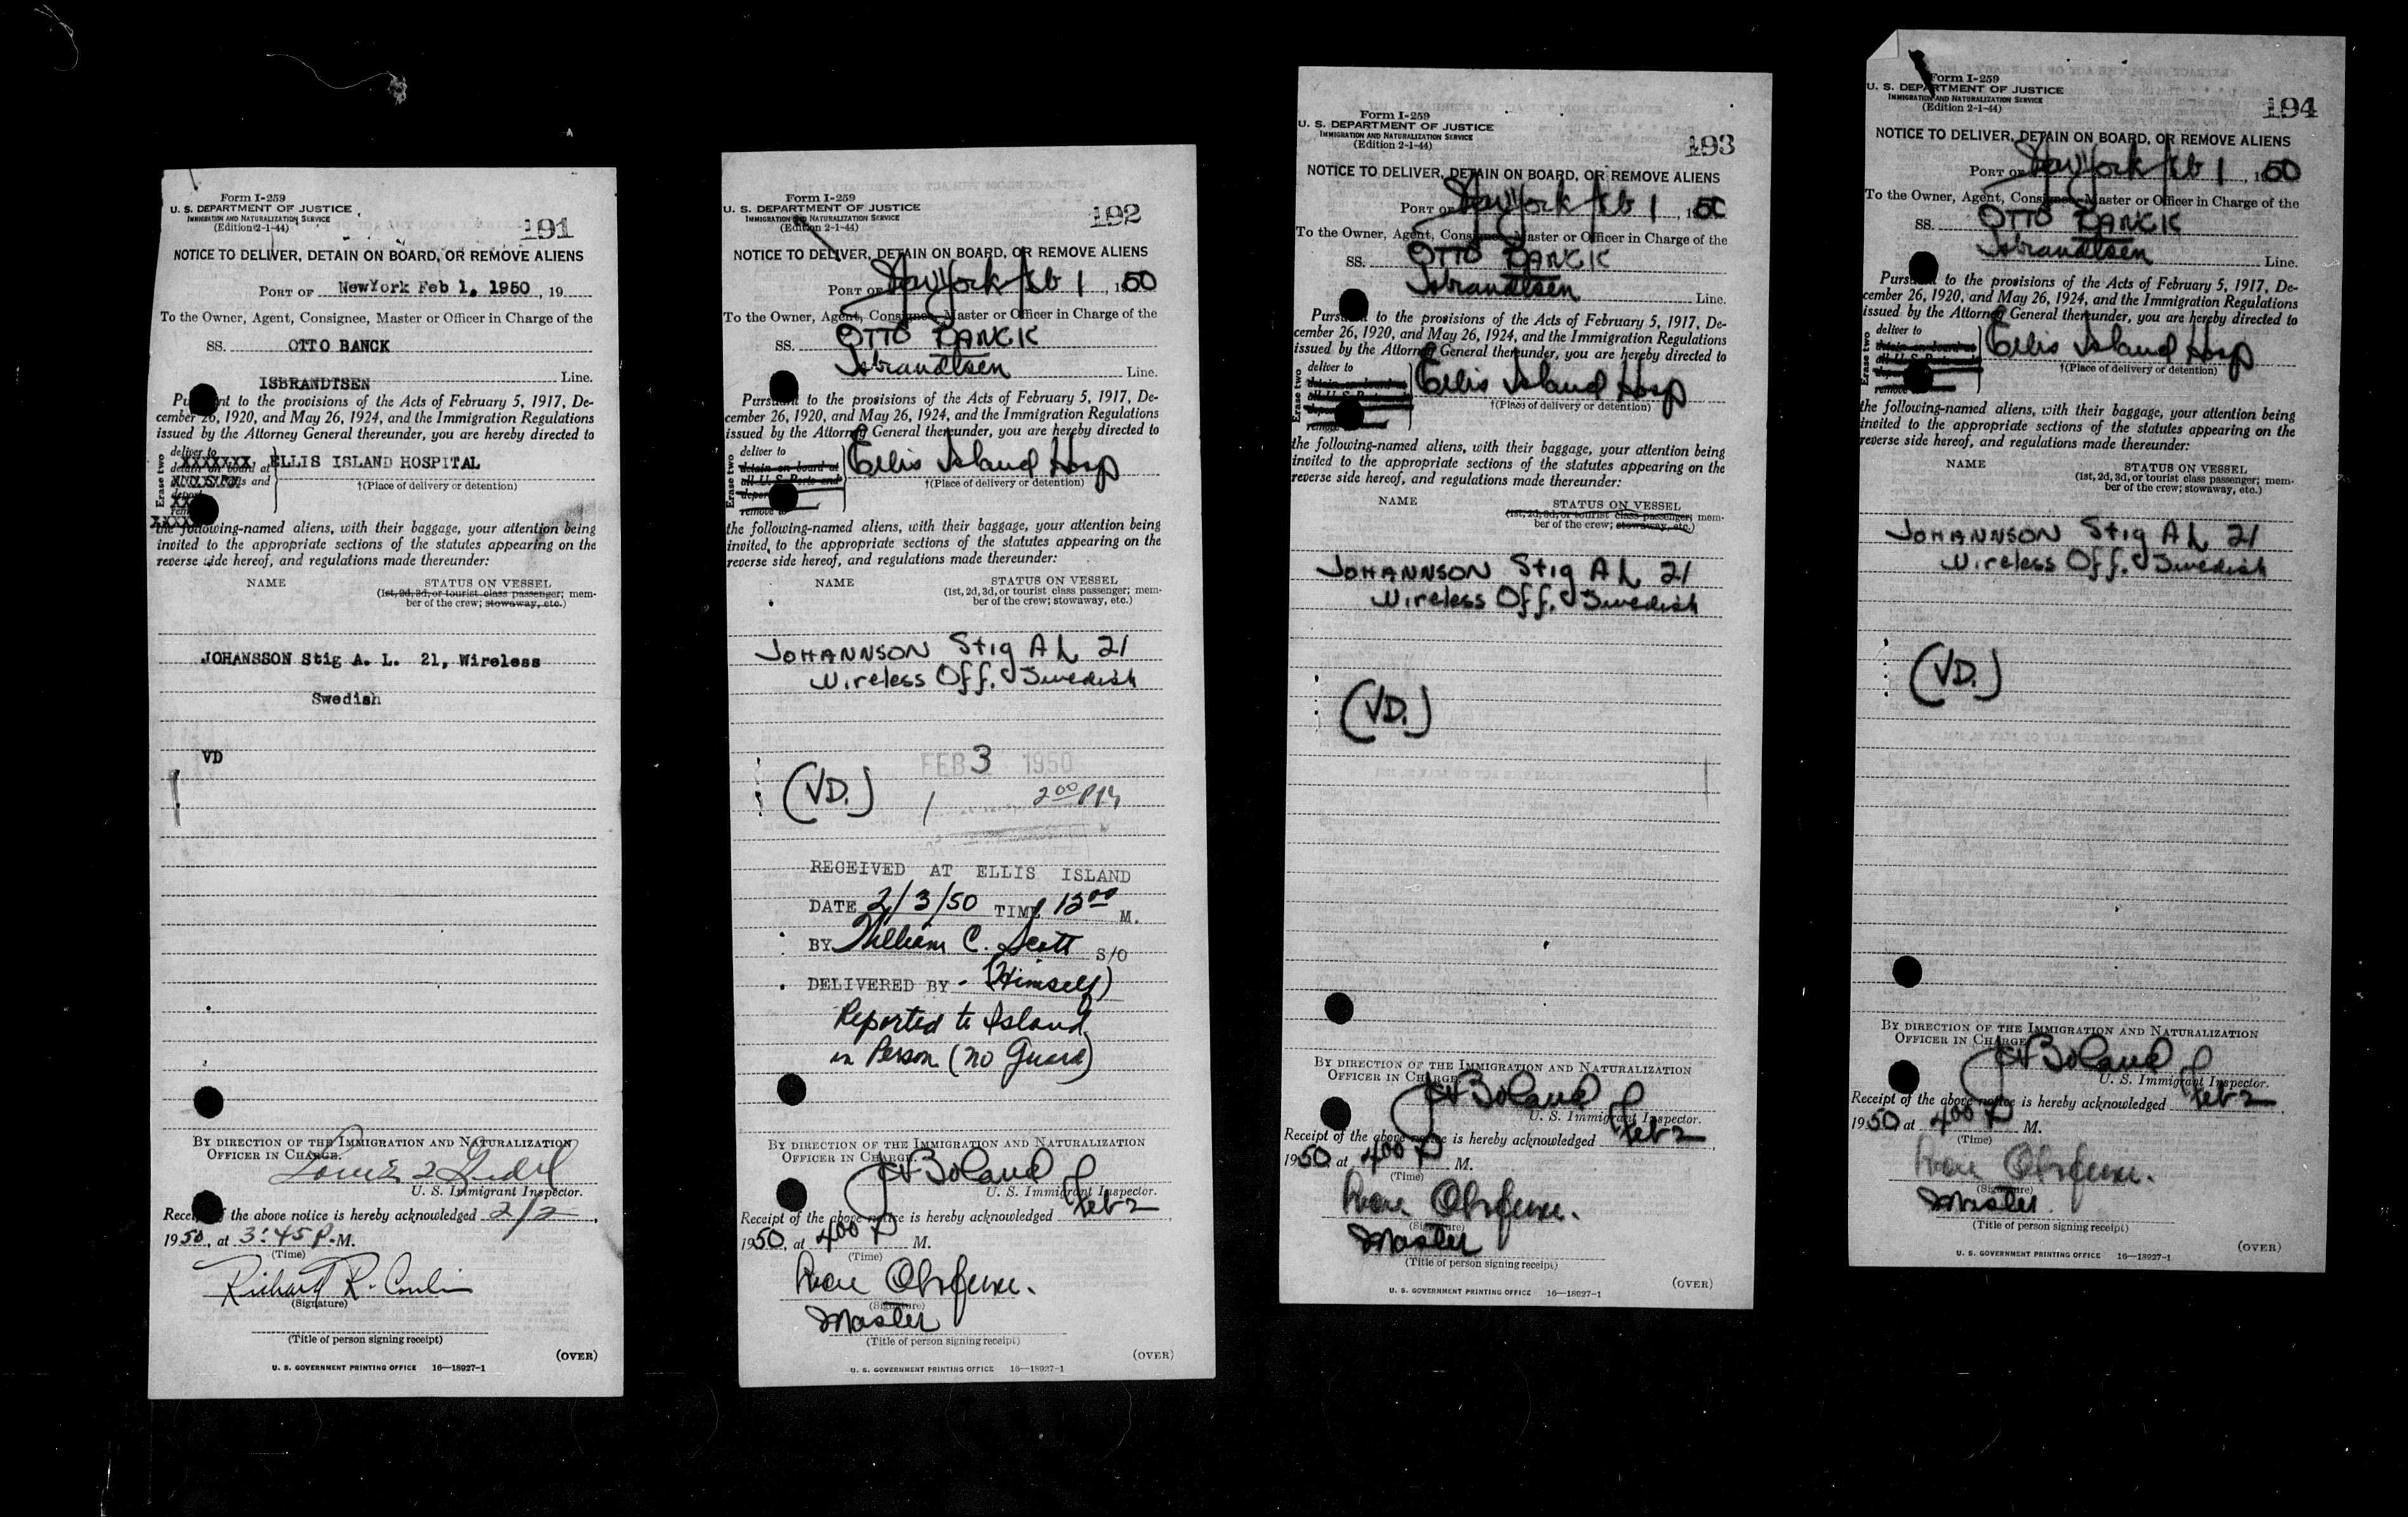 Form I-259
U. S. DEPARTMENT OF JUSTICE
IMMIGRATION AND NATURALIZATION SERVICE
(Edition 2-1-44)
191
NOTICE TO DELIVER, DETAIN ON BOARD, OR REMOVE ALIENS
PORT OF NewYork Feb 1, 1950, 19
To the Owner, Agent, Consignee, Master or Officer in Charge of the
SS. OTTO BANCK
ISBRANDTSEN Line.
Pursuant to the provisions of the Acts of February 5, 1917, De-
cember 26, 1920, and May 26, 1924, and the Immigration Regulations
issued by the Attorney General thereunder, you are hereby directed to
Erase two
deliver to
detain on board at
ELLIS ISLAND HOSPITAL
†(Place of delivery or detention)
the following-named aliens, with their baggage, your attention being
invited to the appropriate sections of the statutes appearing on the
reverse side hereof, and regulations made thereunder:
NAME STATUS ON VESSEL
(1st, 2d, 3d, or tourist class passenger; mem-
ber of the crew; stowaway, etc.)
JOHANSSON Stig A. L. 21, Wireless
Swedish
VD
BY DIRECTION OF THE IMMIGRATION AND NATURALIZATION
OFFICER IN CHARGE.
U. S. Immigrant Inspector.
Receipt of the above notice is hereby acknowledged 2/2,
1950, at 3:45 P. M.
(Time)
Richard R. Conlin
(Signature)
(Title of person signing receipt)
(OVER)
U. S. GOVERNMENT PRINTING OFFICE 16—18927-1
Form I-259
U. S. DEPARTMENT OF JUSTICE
IMMIGRATION AND NATURALIZATION SERVICE
(Edition 2-1-44)
192
NOTICE TO DELIVER, DETAIN ON BOARD, OR REMOVE ALIENS
PORT OF New York Feb 1, 1950
To the Owner, Agent, Consignee, Master or Officer in Charge of the
SS. OTTO BANCK
Isbrandtsen Line.
Pursuant to the provisions of the Acts of February 5, 1917, De-
cember 26, 1920, and May 26, 1924, and the Immigration Regulations
issued by the Attorney General thereunder, you are hereby directed to
Erase two
deliver to
detain on board at
all U. S. Ports and
remove to
Ellis Island Hosp
†(Place of delivery or detention)
the following-named aliens, with their baggage, your attention being
invited to the appropriate sections of the statutes appearing on the
reverse side hereof, and regulations made thereunder:
NAME STATUS ON VESSEL
(1st, 2d, 3d, or tourist class passenger; mem-
ber of the crew; stowaway, etc.)
JOHANNSON Stig A L 21
Wireless Off. Swedish
FEB 3 1950
(VD.) 2 00 PM
RECEIVED AT ELLIS ISLAND
DATE 2/3/50 TIME 13 00 M.
BY William C. Scott S/O
DELIVERED BY - (Himself)
Reported to Island
in Person (no Guard)
BY DIRECTION OF THE IMMIGRATION AND NATURALIZATION
OFFICER IN CHARGE.
J H Boland
U. S. Immigrant Inspector.
Receipt of the above notice is hereby acknowledged Feb 2,
1950, at 400 P M.
(Time)
(Signature)
Master
(Title of person signing receipt)
(OVER)
U. S. GOVERNMENT PRINTING OFFICE 16—18927-1
Form I-259
U. S. DEPARTMENT OF JUSTICE
IMMIGRATION AND NATURALIZATION SERVICE
(Edition 2-1-44)
193
NOTICE TO DELIVER, DETAIN ON BOARD, OR REMOVE ALIENS
PORT OF New York Feb 1, 1950
To the Owner, Agent, Consignee, Master or Officer in Charge of the
SS. OTTO BANCK
Isbrandtsen Line.
Pursuant to the provisions of the Acts of February 5, 1917, De-
cember 26, 1920, and May 26, 1924, and the Immigration Regulations
issued by the Attorney General thereunder, you are hereby directed to
Erase two
deliver to
detain on board at
all U. S. Ports and
remove to
Ellis Island Hosp
†(Place of delivery or detention)
the following-named aliens, with their baggage, your attention being
invited to the appropriate sections of the statutes appearing on the
reverse side hereof, and regulations made thereunder:
NAME STATUS ON VESSEL
(1st, 2d, 3d, or tourist class passenger; mem-
ber of the crew; stowaway, etc.)
JOHANNSON Stig A L 21
Wireless Off. Swedish
(VD.)
BY DIRECTION OF THE IMMIGRATION AND NATURALIZATION
OFFICER IN CHARGE.
J H Boland
U. S. Immigrant Inspector.
Receipt of the above notice is hereby acknowledged Feb 2,
1950, at 400 P M.
(Time)
(Signature)
Master
(Title of person signing receipt)
(OVER)
U. S. GOVERNMENT PRINTING OFFICE 16—18927-1
Form I-259
U. S. DEPARTMENT OF JUSTICE
IMMIGRATION AND NATURALIZATION SERVICE
(Edition 2-1-44)
194
NOTICE TO DELIVER, DETAIN ON BOARD, OR REMOVE ALIENS
PORT OF New York Feb 1, 1950
To the Owner, Agent, Consignee, Master or Officer in Charge of the
SS. OTTO BANCK
Isbrandtsen Line.
Pursuant to the provisions of the Acts of February 5, 1917, De-
cember 26, 1920, and May 26, 1924, and the Immigration Regulations
issued by the Attorney General thereunder, you are hereby directed to
Erase two
deliver to
detain on board at
all U. S. Ports and
remove to
Ellis Island Hosp
†(Place of delivery or detention)
the following-named aliens, with their baggage, your attention being
invited to the appropriate sections of the statutes appearing on the
reverse side hereof, and regulations made thereunder:
NAME STATUS ON VESSEL
(1st, 2d, 3d, or tourist class passenger; mem-
ber of the crew; stowaway, etc.)
JOHANNSON Stig A L 21
Wireless Off. Swedish
(VD.)
BY DIRECTION OF THE IMMIGRATION AND NATURALIZATION
OFFICER IN CHARGE.
J H Boland
U. S. Immigrant Inspector.
Receipt of the above notice is hereby acknowledged Feb 2
1950 at 400 P M.
(Time)
(Signature)
Master.
(Title of person signing receipt)
(OVER)
U. S. GOVERNMENT PRINTING OFFICE 16—18927-1